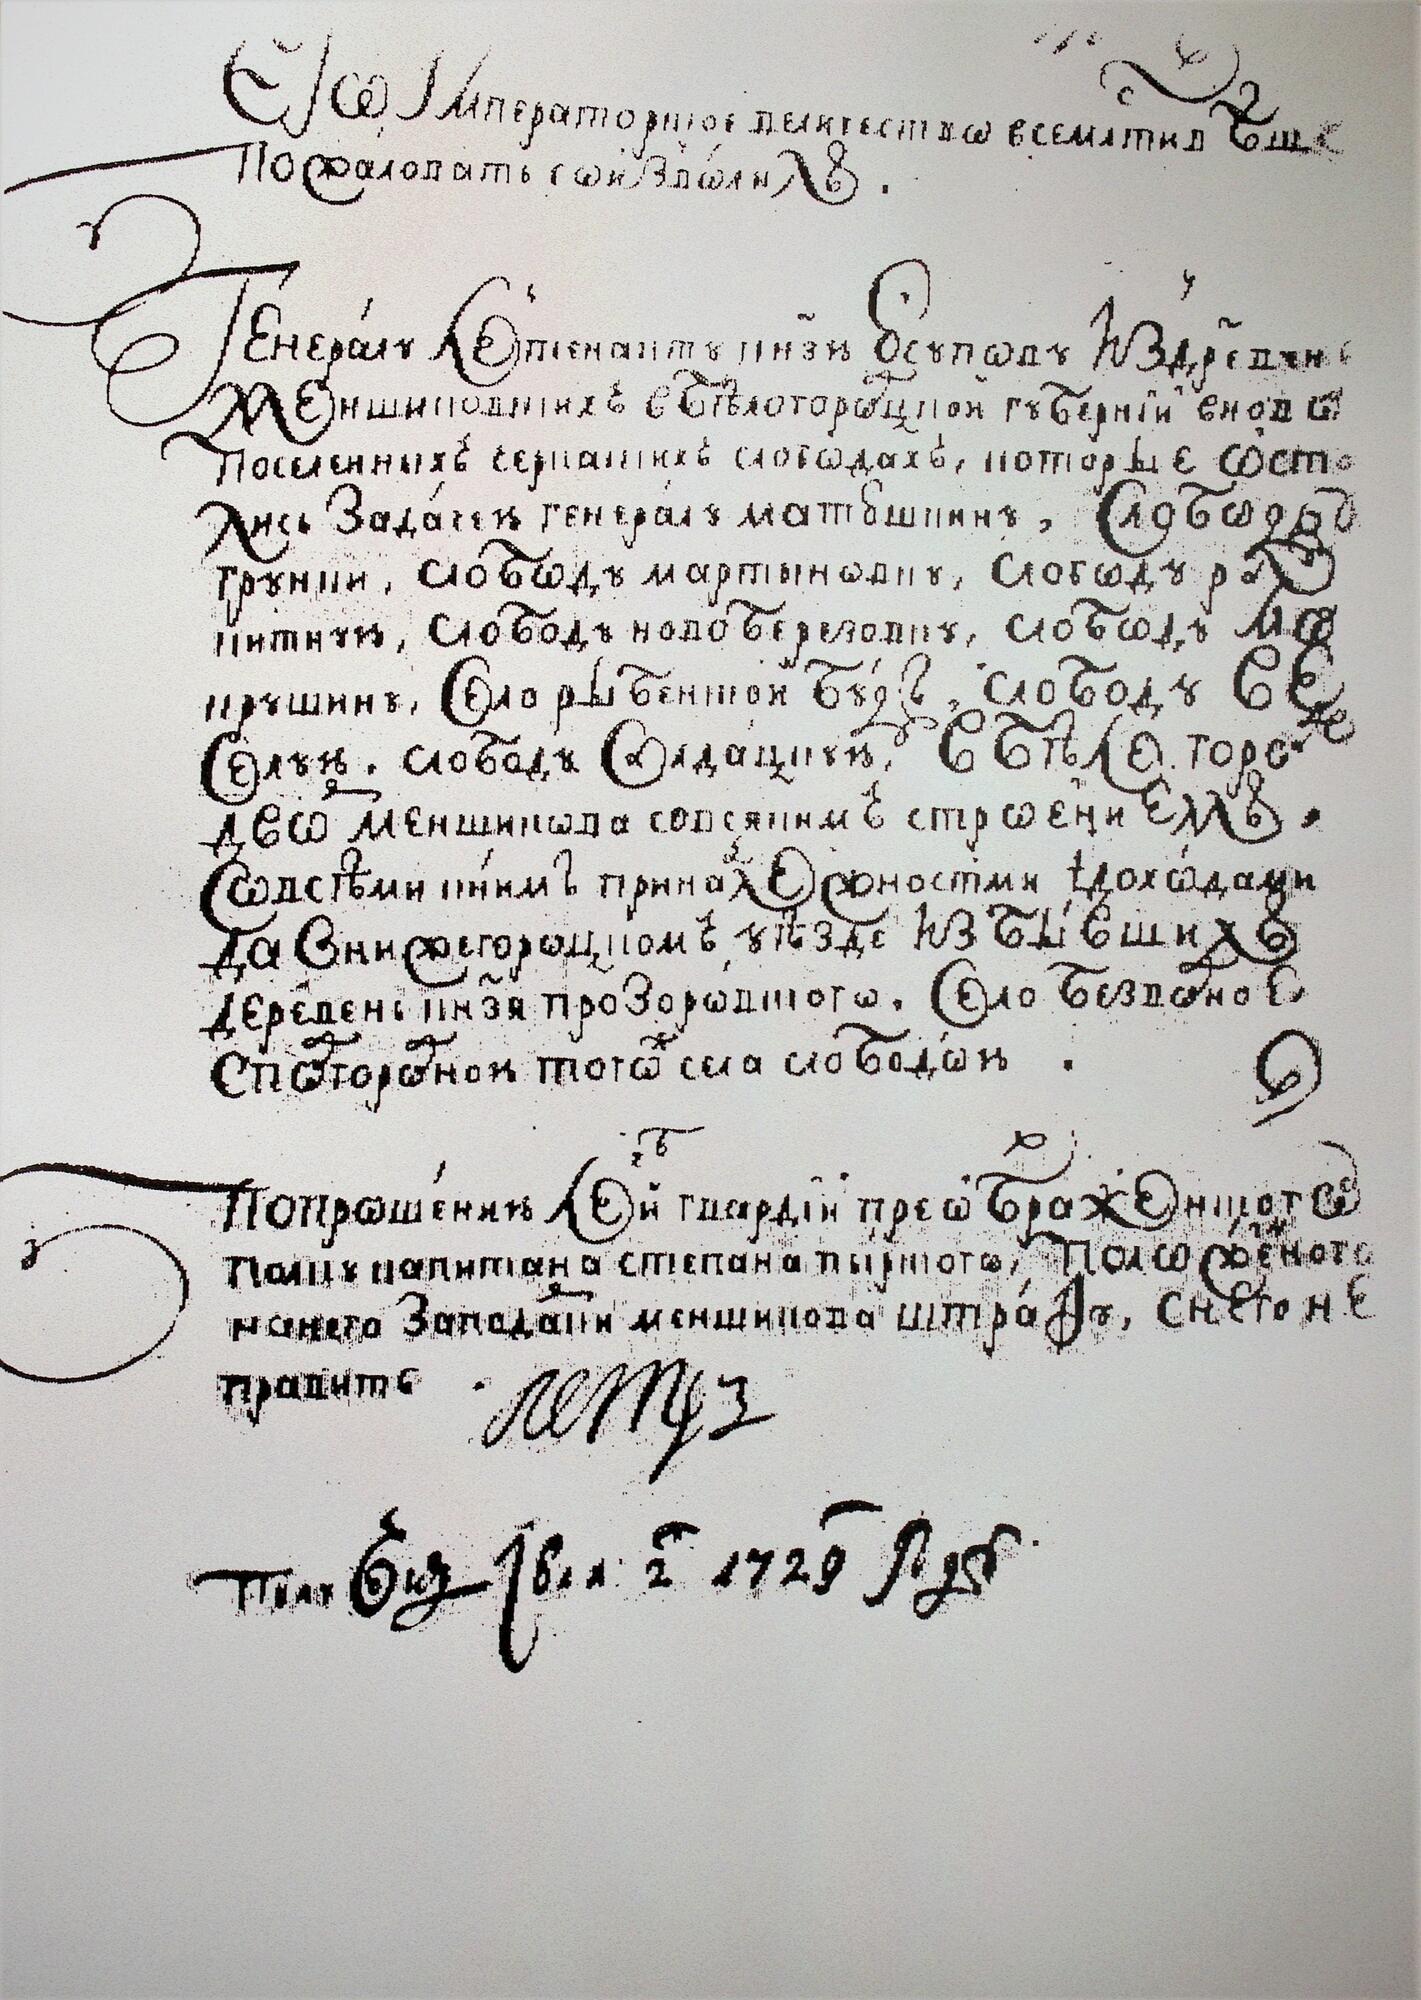 Егѡ Императорское величествѡ всемлтивѣише
Пожаловать сѡизвѡлилъ .
Генералу леитенанту кнзю Юсупову Из дрѣвень
Меншиковских в Бѣлогороцкой губернии вновь
поселенных черкаских слободах, которые ѡсто
лись за дачею генералу матюшкину, Слободу
грунки, слободу мартыновку, слободу ра
китную, слободу новоберезовку, слободу
крушину, Село рыбенской буды, слободу ве
селую, слободу Солдацкую, в Бѣле горо
двѡ меншикова со всяким строениемъ .
Сѡ всѣми к ним принадлежностми и доходами
да в нижегороцком уѣзде из бывших
деревень кнзя прозоровского. Село безводное
с патороною тогѡж села слободою .
По прошению лейб гвардии преѡбраженского
полку капитана степана пырского, положеного
на него за повадки меншикова штрафу, с него не
править . Петръ
1729